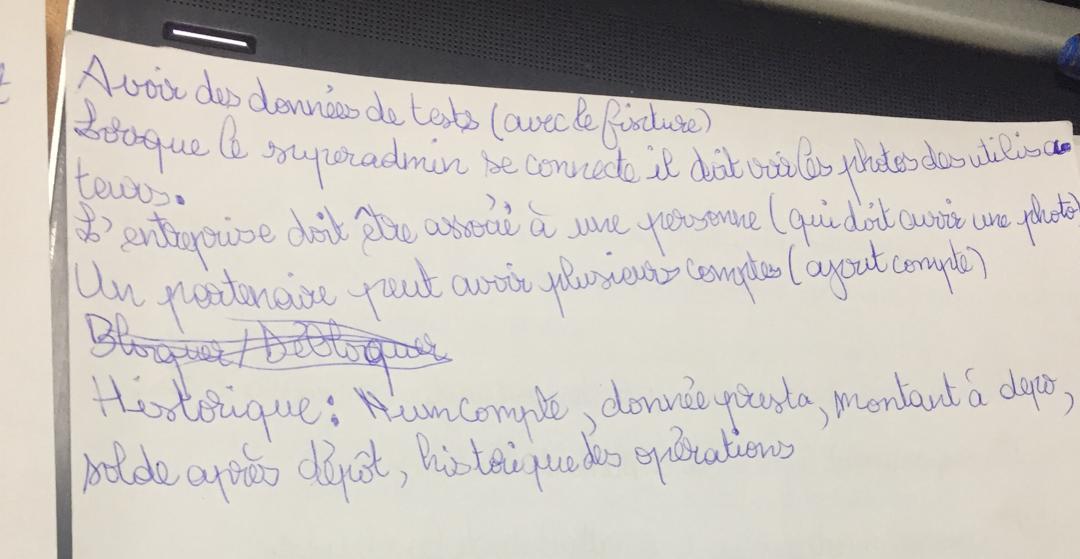 Avoir des données de tests (avec le fixture)
Lorsque le superadmin se connecte il doit voir les photos des utilisa
teurs.
L'entreprise doit être associé à une personne (qui doit avoir une photo)
Un partenaire peut avoir plusieurs comptes (ajout compte)
Bloquer/Débloquer
Historique: Numcompte, donnée presta, montant à depo,
solde après dépôt, historique des opérations